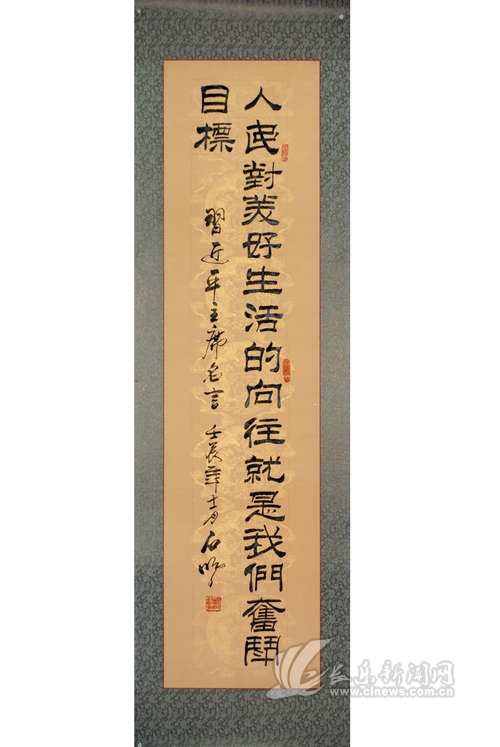 人民對美好生活的向往就是我們奮鬪
目標
習近平主席名言 壬辰年十一月 石
长乐新闻网
www.clnews.com.cn